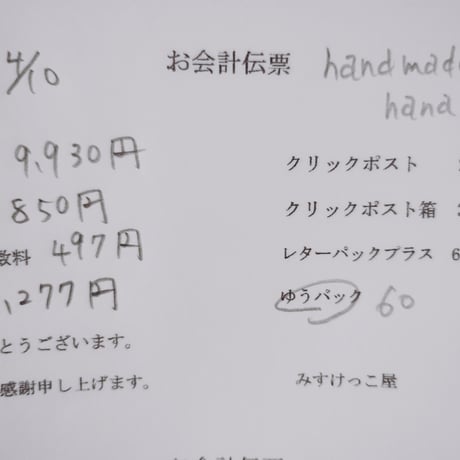 4/10 お会計伝票 handmade
hana
9,930円 クリックポスト
850円 クリックポスト箱
数料 497円 レターパックプラス 6
,277円 ゆうパック 60
とうございます。
感謝申し上げます。 みすけっこ屋